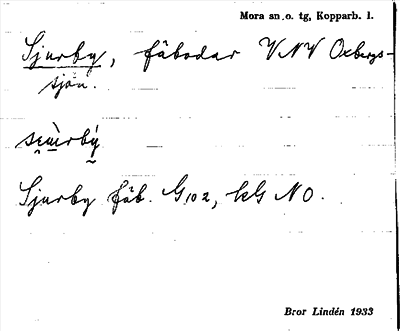 Mora sn. o. tg, Kopparb. l.
Sjurby, fäbodar VNV Oxbergs-
sjön.
Sjurby fäb. G102, kG NO.
Bror Lindén 1933